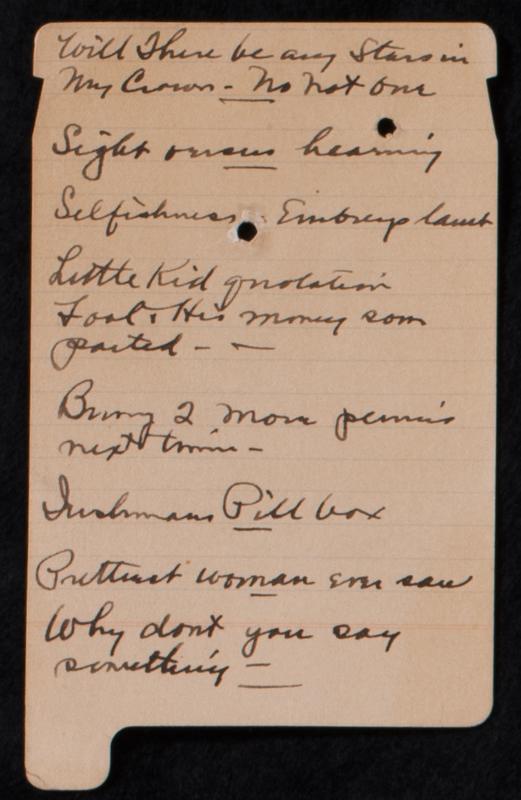 Will There be any Stars in
My Crown - No Not One
Sight versus hearing
Selfishness
Little Kid quotation
Fool & His money soon
parted - -
2 more pennies
next time -
Irishmans Pill box
Prettiest woman ever saw
Why dont you say
something -